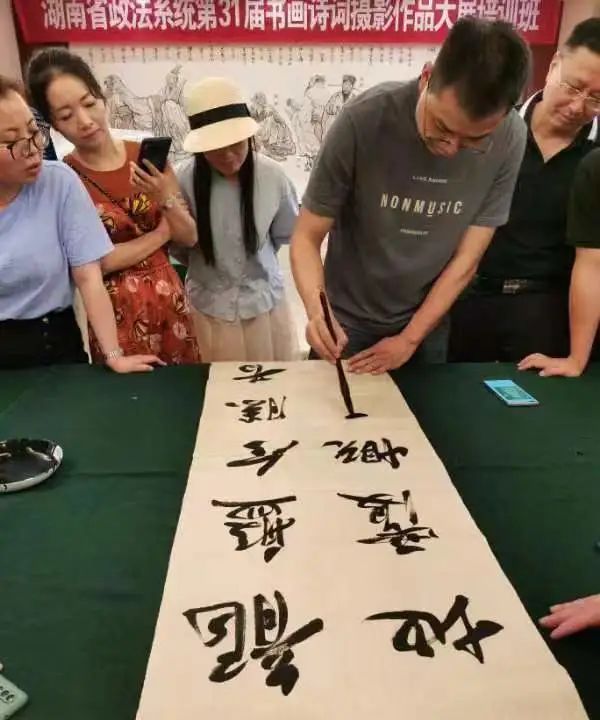 湖南省政法系统第31届书画诗词摄影作品大展培训班
NONMUSIC
龍盤今勝昔
地覆慨